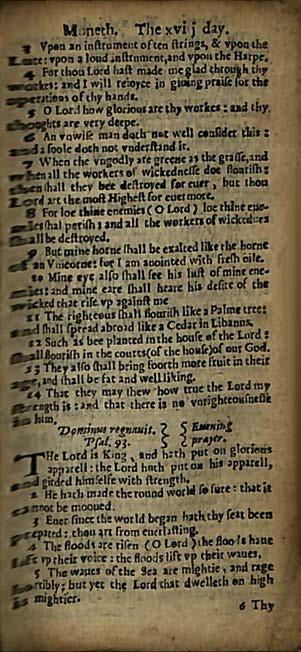 Moneth. The xvij day.
3 Vpon an instrument of ten strings, & vpon the
Lute: vpon a loud instrument, and vpon the Harpe.
4 For thou Lord hast made me glad through thy
workes: and I will reioyce in giuing praise for the
operations of thy hands.
5 O Lord how glorious are thy workes: and thy
thoughts are very deepe.
6 An vnwise man doth not well consider this:
and a foole doth not vnderstand it.
7 When the vngodly are greene as the grasse, and
when all the workers of wickednesse doe flourish:
then shall they bee destroyed for euer, but thou
Lord art the most Highest for euermore.
8 For loe thine enemies (O Lord) loe thine ene-
mies shall perish: and all the workers of wickednes
shall be destroyed.
9 But mine horne shall be exalted like the horne
of an Vnicorne: for I am anointed with fresh oile.
10 Mine eye also shall see his lust of mine ene-
mies: and mine eare shall heare his desire of the
wicked that rise vp against me
11 The righteous shall flourish like a Palme tree:
and shall spread abroad like a Cedar in Libanus.
12 Such as bee planted in the house of the Lord:
shall flourish in the courts (of the house) of our God.
13 They also shall bring foorth more fruit in their
age, and shall be fat and well liking.
14 That they may shew how true the Lord my
strength is: and that there is no vnrighteousnesse
in him.
Dominus regnauit. Euening
Psal. 93. prayer.
THe Lord is King, and hath put on glorious
apparell: the Lord hath put on his apparell,
and girded himselfe with strength.
2 He hath made the round world so sure: that it
cannot be mooued.
3 Euer since the world began hath thy seat been
prepared: thou art from euerlasting.
4 The floods are risen (O Lord) the floods haue
lift vp their voice: the floods lift vp their waues.
5 The waues of the Sea are mightie, and rage
horribly: but yet the Lord that dwelleth on high
is mightier.
6 Thy